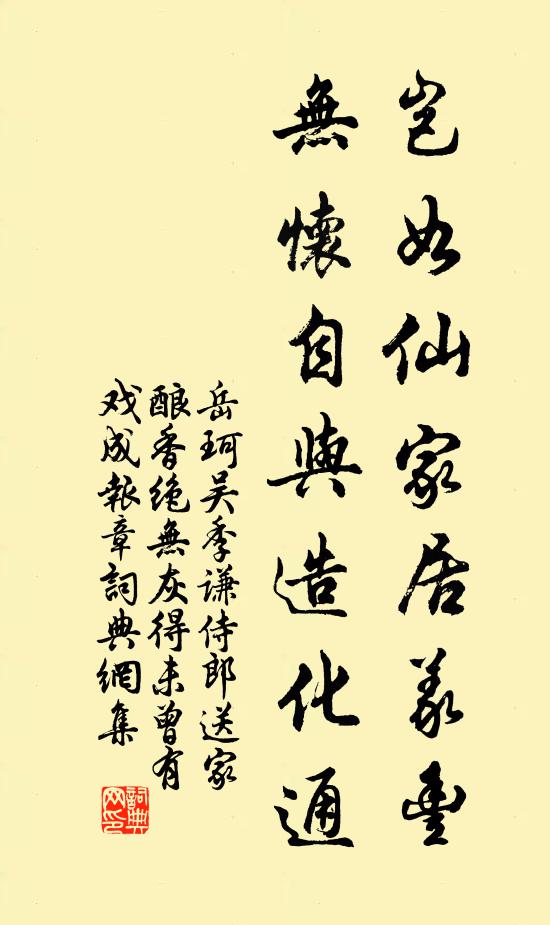 岂如仙家居義豐
無懷自與造化通
岳珂吴季謙侍郎送家
酿香绝無灰得未曾有
戏成報章詞典網集
詞典
网印